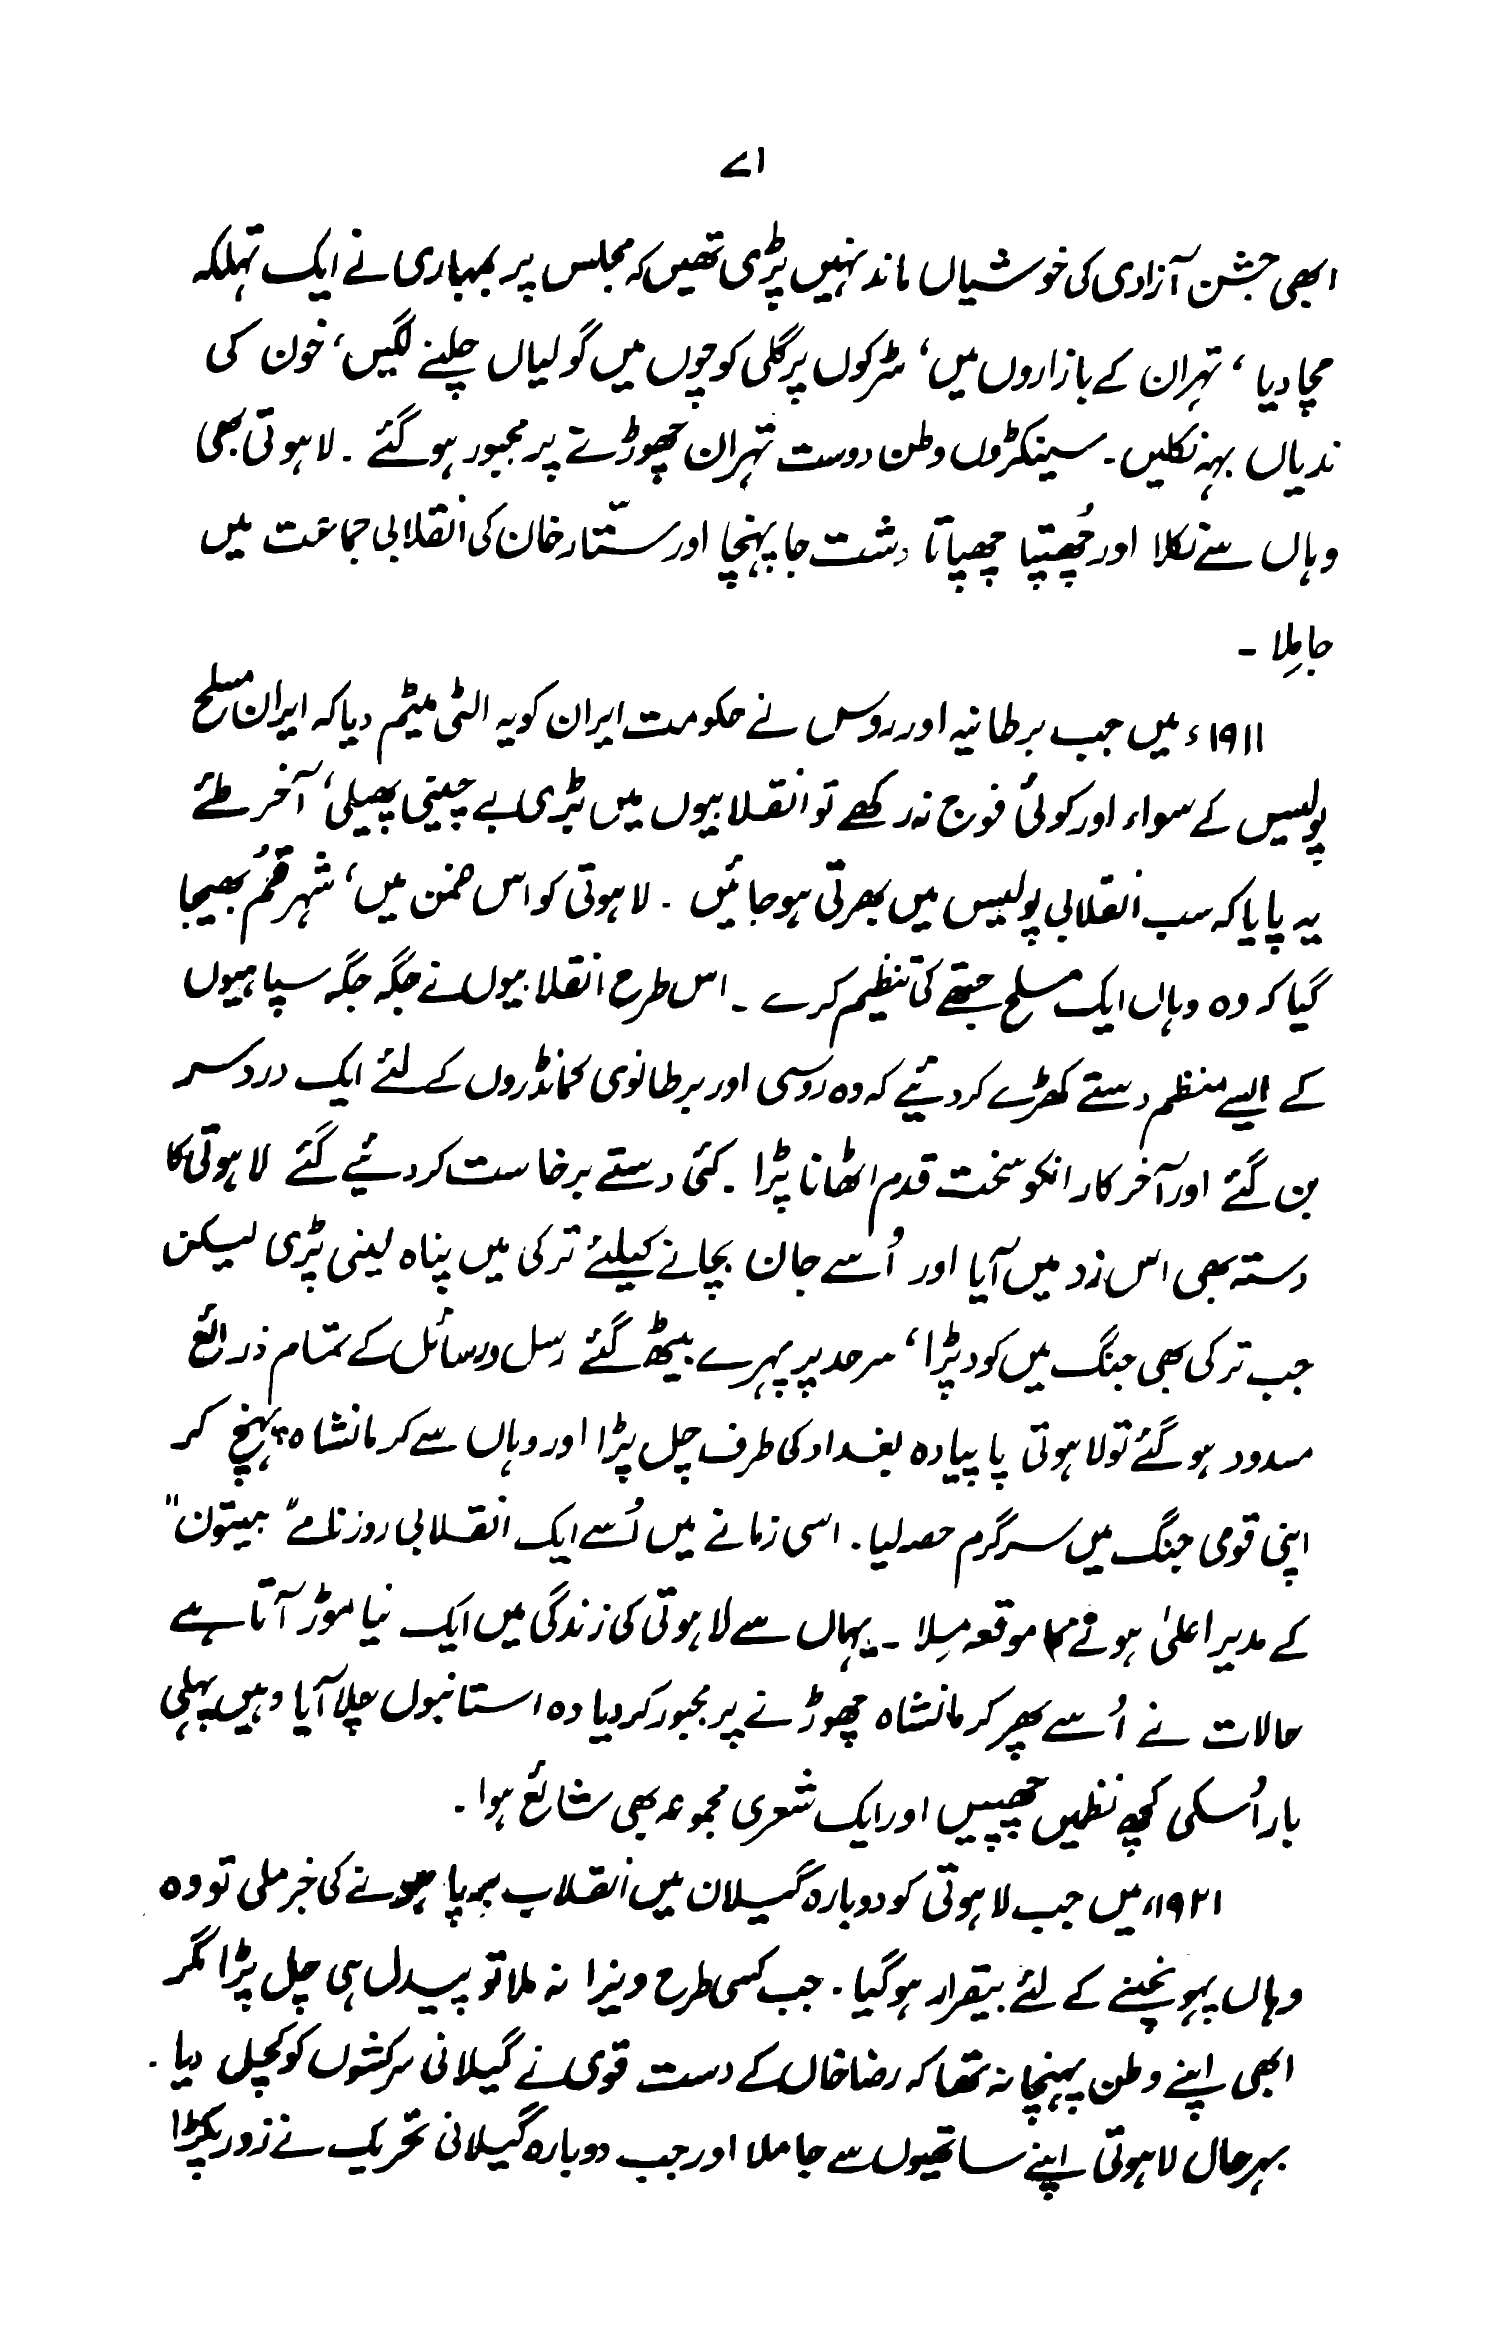 ۷۱
ابھی جشن آزادی کی خوشیاں ماند نہیں پڑی تھیں کہ مجلس پر بمباری نے ایک تہلکہ
مچا دیا ، تہران کے بازاروں میں، سڑکوں پر گلی کوچوں میں گولیاں چلنے لگیں، خون کی
ندیاں بہہ نکلیں۔ سینکڑوں وطن دوست تہران چھوڑنے پر مجبور ہوگئے ۔ لاہوتی بھی
وہاں سے نکلا اور چُھپتا چھپاتا دشت جا پہنچا اور ستّار خان کی انقلابی جماعت میں
جا مِلا ۔
۱۹۱۱ء میں جب برطانیہ اور روس نے حکومت ایران کو یہ الٹی میٹم دیا کہ ایران مسلح
پولیس کے سواء اور کوئی فوج نہ رکھے تو انقلابیوں میں بڑی بے چینی پھیلی، آخر طئے
یہ پایا کہ سب انقلابی پولیس میں بھرتی ہوجائیں ۔ لاہوتی کو اس ضمن میں، شہر قُم بھیجا
گیا کہ وہ وہاں ایک مسلح جتھے کی تنظیم کرے ۔ اس طرح انقلابیوں نے جگہ جگہ سپاہیوں
کے ایسے منظم دستے کھڑے کر دئیے کہ وہ روسی اور برطانوی کمانڈروں کے لئے ایک درد سر
بن گئے اور آخر کار انکو سخت قدم اٹھانا پڑا ۔ کئی دستے برخاست کر دئیے گئے لاہوتی کا
دستہ بھی اس زد میں آیا اور اُسے جان بچانے کیلئے ترکی میں پناہ لینی پڑی لیکن
جب ترکی بھی جنگ میں کود پڑا، سرحد پر پہرے بیٹھ گئے رسل و رسائل کے تمام ذرائع
مسدود ہو گئے تو لاہوتی پا پیادہ بغداد کی طرف چل پڑا اور وہاں سے کرمانشاہ پہنچ کر
اپنی قومی جنگ میں سرگرم حصہ لیا۔ اسی زمانے میں اُسے ایک انقلابی روزنامے "بیتون"
کے مدیر اعلیٰ ہونے کا موقعہ مِلا ۔ یہاں سے لاہوتی کی زندگی میں ایک نیا موڑ آتا ہے
حالات نے اُسے پھر کرمانشاہ چھوڑنے پر مجبور کر دیا وہ استانبول چلا آیا وہیں پہلی
بار اُسکی کچھ نظمیں چھپیں اور ایک شعری مجموعہ بھی شائع ہوا ۔
۱۹۲۱ء میں جب لاہوتی کو دوبارہ گیلان میں انقلاب برپا ہونے کی خبر ملی تو وہ
وہاں پہونچنے کے لئے بیقرار ہوگیا ۔ جب کسی طرح ویزا نہ ملا تو پیدل ہی چل پڑا مگر
ابھی اپنے وطن پہنچا نہ تھا کہ رضا خاں کے دست قوی نے گیلانی سرکشوں کو کچل دیا ۔
بہر حال لاہوتی اپنے ساتھیوں سے جا ملا اور جب دوبارہ گیلانی تحریک نے زور پکڑا